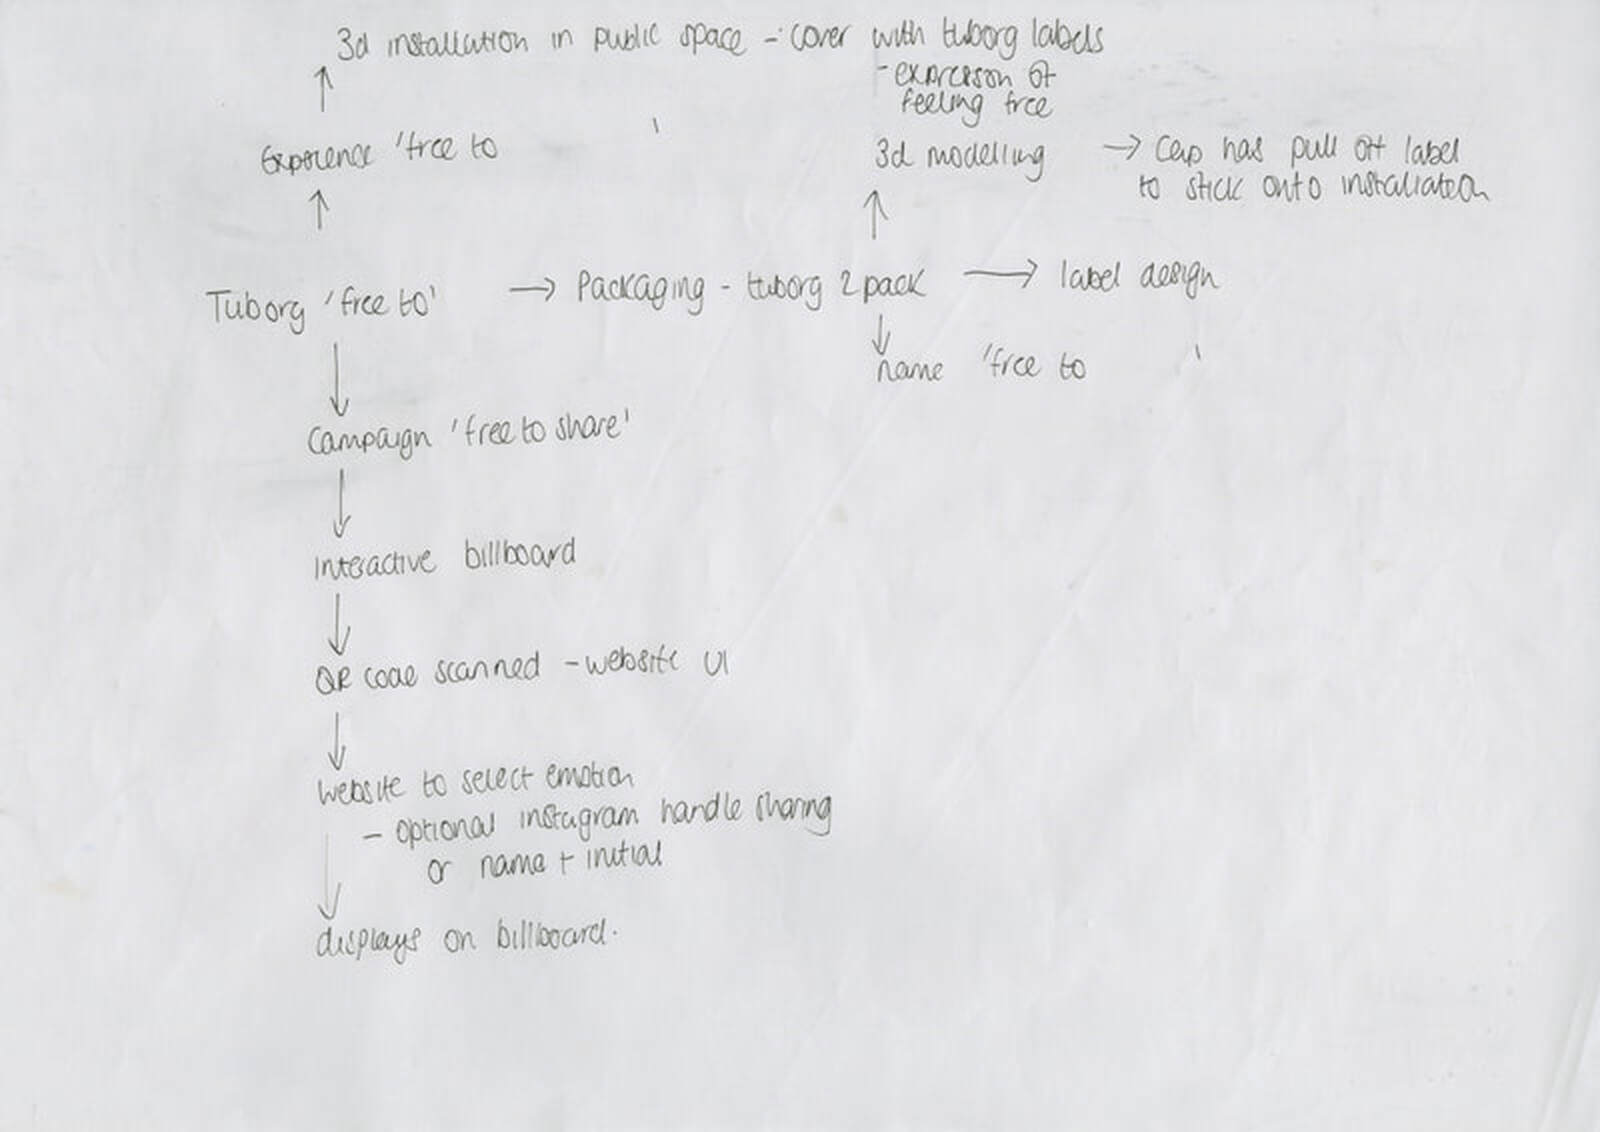 3d installation in public space - cover with tuborg labels
- expression of
feeling free
Experience 'free to          '
3d modelling → Cap has pull off label
to stick onto installation
Tuborg 'free to' → Packaging - tuborg 2 pack → label design
name 'free to          '
Campaign 'free to share'
Interactive billboard
QR code scanned - website UI
website to select emotion
- optional instagram handle sharing
or name + initial
displays on billboard.